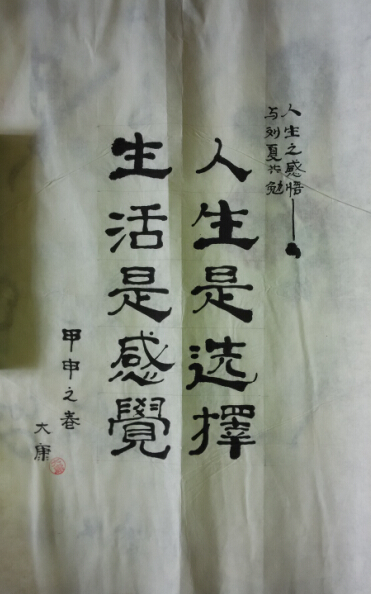 人生之感悟——
与刘夏共勉
人生是选擇
生活是感覺
甲申之春
大康